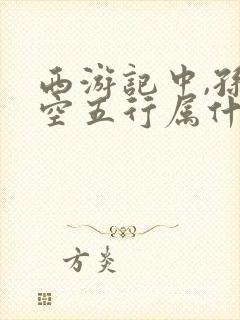 西游記中,孫
空五行属什
方炎